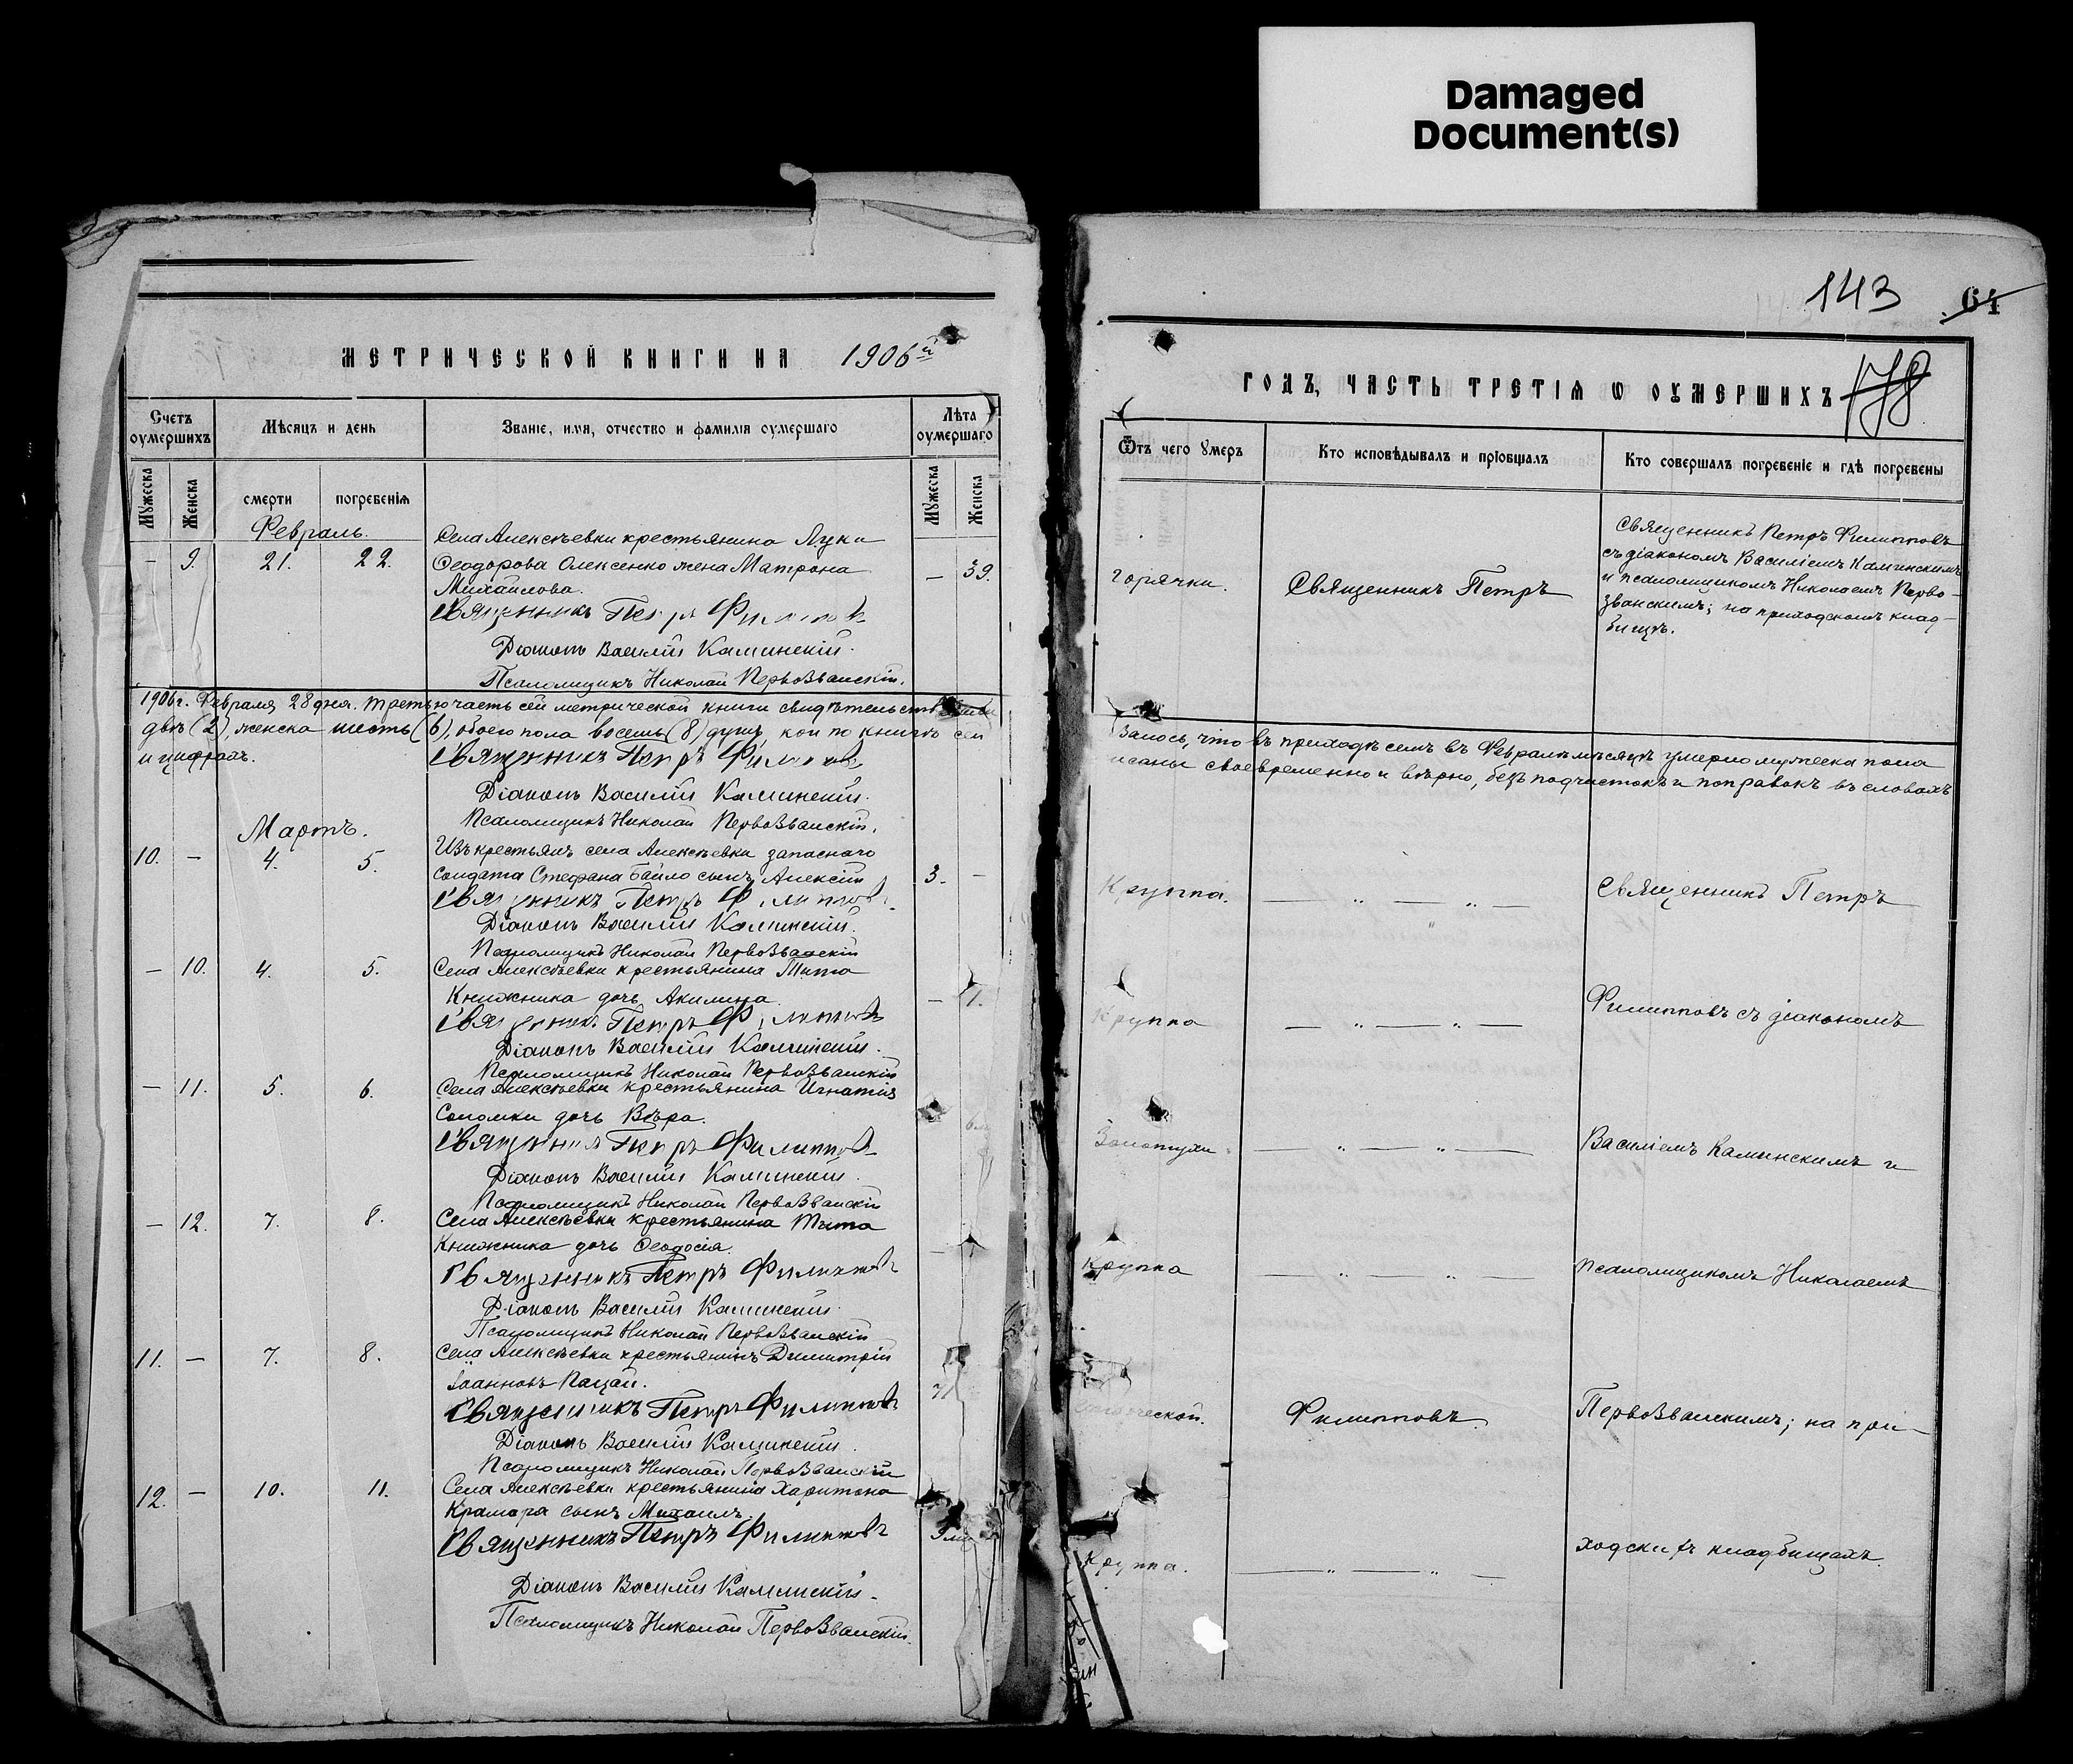 Damaged
Document(s)
МЕТРИЧЕСКОЙ КНИГИ НА 1906й
Счетъ оумершихъ
Мѣсяцъ и день
Званіе, имя, отчество и фамилія оумершаго
Лѣта оумершаго
Мужеска
Женска
смерти
погребенія
Мужеска
Женска
Февраль.
— 9. 21. 22. Села Алексѣевки крестьянина Луки
Ѳеодорова Олексенко жена Матрона — 39.
Михайлова.
Священникъ Петръ Филипповъ
Діаконъ Василій Каминскій.
Псаломщикъ Николай Первозванскій.
1906 г. Февраля 28 дня. Третью часть сей метрической книги
двѣ (2), женска шесть (6), обоего пола восемь (8) душъ, кои по книгѣ сей
и цифрахъ.
Священникъ Петръ Филипповъ
Діаконъ Василій Каминскій.
Псаломщикъ Николай Первозванскій.
Мартъ.
10. — 4. 5. Изъ крестьянъ села Алексѣевки запаснаго
солдата Стефана Байло сынъ Алексій 3. —
Священникъ Петръ Филипповъ
Діаконъ Василій Каминскій.
Псаломщикъ Николай Первозванскій
— 10. 4. 5. Села Алексѣевки крестьянина Тита
Книжника дочь Акилина. — 1.
Священникъ Петръ Филипповъ
Діаконъ Василій Каминскій.
Псаломщикъ Николай Первозванскій
— 11. 5. 6. Села Алексѣевки крестьянина Игнатія
Соломки дочь Вѣра.
Священникъ Петръ Филипповъ
Діаконъ Василій Каминскій.
Псаломщикъ Николай Первозванскій
— 12. 7. 8. Села Алексѣевки крестьянина Тита
Книжника дочь Ѳеодосія.
Священникъ Петръ Филипповъ
Діаконъ Василій Каминскій
Псаломщикъ Николай Первозванскій
11. — 7. 8. Села Алексѣевки крестьянинъ Димитрій
Іоанновъ Пацай.
Священникъ Петръ Филипповъ
Діаконъ Василій Каминскій.
Псаломщикъ Николай Первозванскій
12. — 10. 11. Села Алексѣевки крестьянина Харитона
Крамаря сынъ Михаилъ.
Священникъ Петръ Филипповъ
Діаконъ Василій Каминскій.
Псаломщикъ Николай Первозванскій.
143 64
ГОДЪ, ЧАСТЬ ТРЕТІЯ Ѡ ОУМЕРШИХЪ 178
Ѿтъ чего умеръ
Кто исповѣдывалъ и пріобщалъ
Кто совершалъ погребеніе и гдѣ погребены
горячки.
Священникъ Петръ
Священникъ Петръ Филипповъ
съ діакономъ Василіемъ Каминскимъ
и псаломщикомъ Николаемъ Перво-
званскимъ; на приходскомъ клад-
бищѣ.
что въ приходѣ семъ въ Февралѣ мѣсяцѣ умерло мужеска пола
исаны своевременно и вѣрно, безъ подчистокъ и поправокъ въ словахъ
Круппа. — „ — „ — Священникъ Петръ
Круппа — „ — „ — Филипповъ съ діакономъ
Золотухи. — „ — „ — Василіемъ Каминскимъ и
Круппа — „ — „ — псаломщикомъ Николаемъ
Филипповъ. Первозванскимъ; на при-
Круппа. — „ — „ — ходскихъ кладбищахъ.